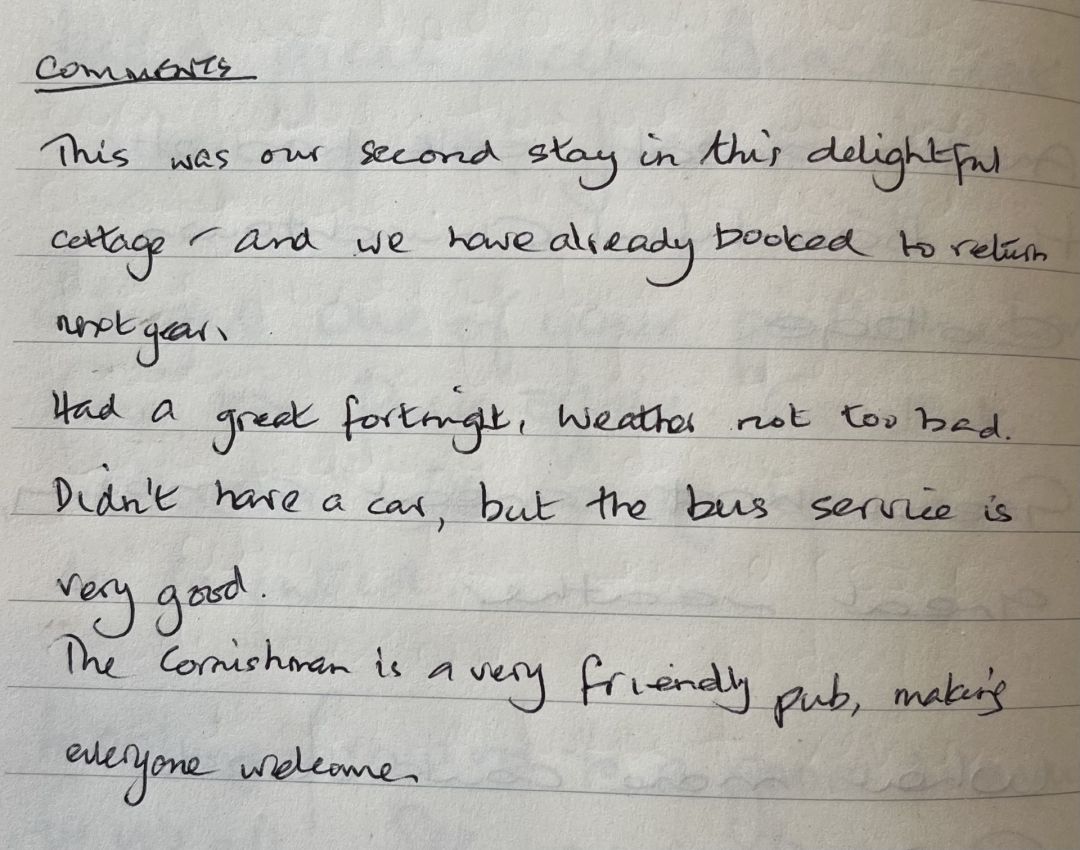 COMMENTS
This was our second stay in this delightful
cottage - and we have already booked to return
next year.
Had a great fortnight, weather not too bad.
Didn't have a car, but the bus service is
very good.
The Cornishman is a very friendly pub, making
everyone welcome.